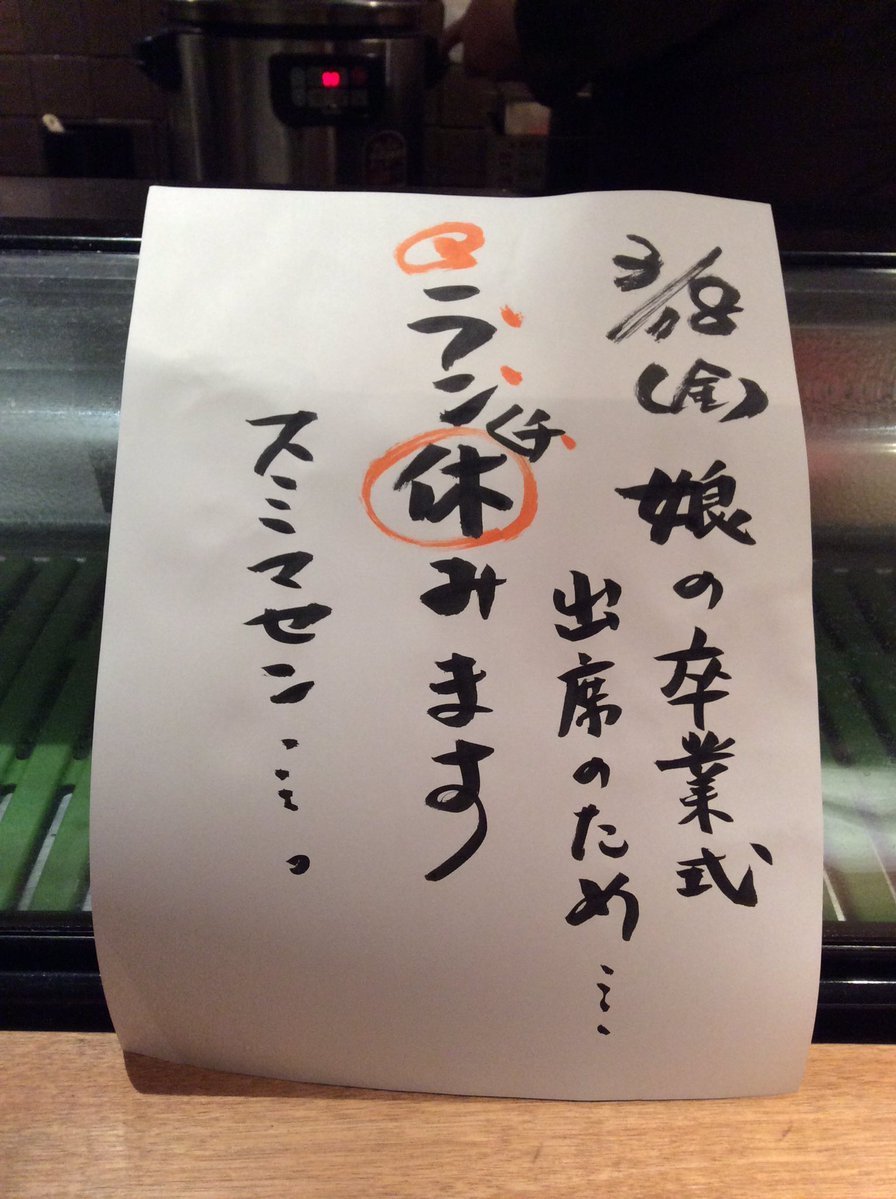 3/18(金)娘の卒業式
出席のため…
ランチ休みます
スミマセン…。